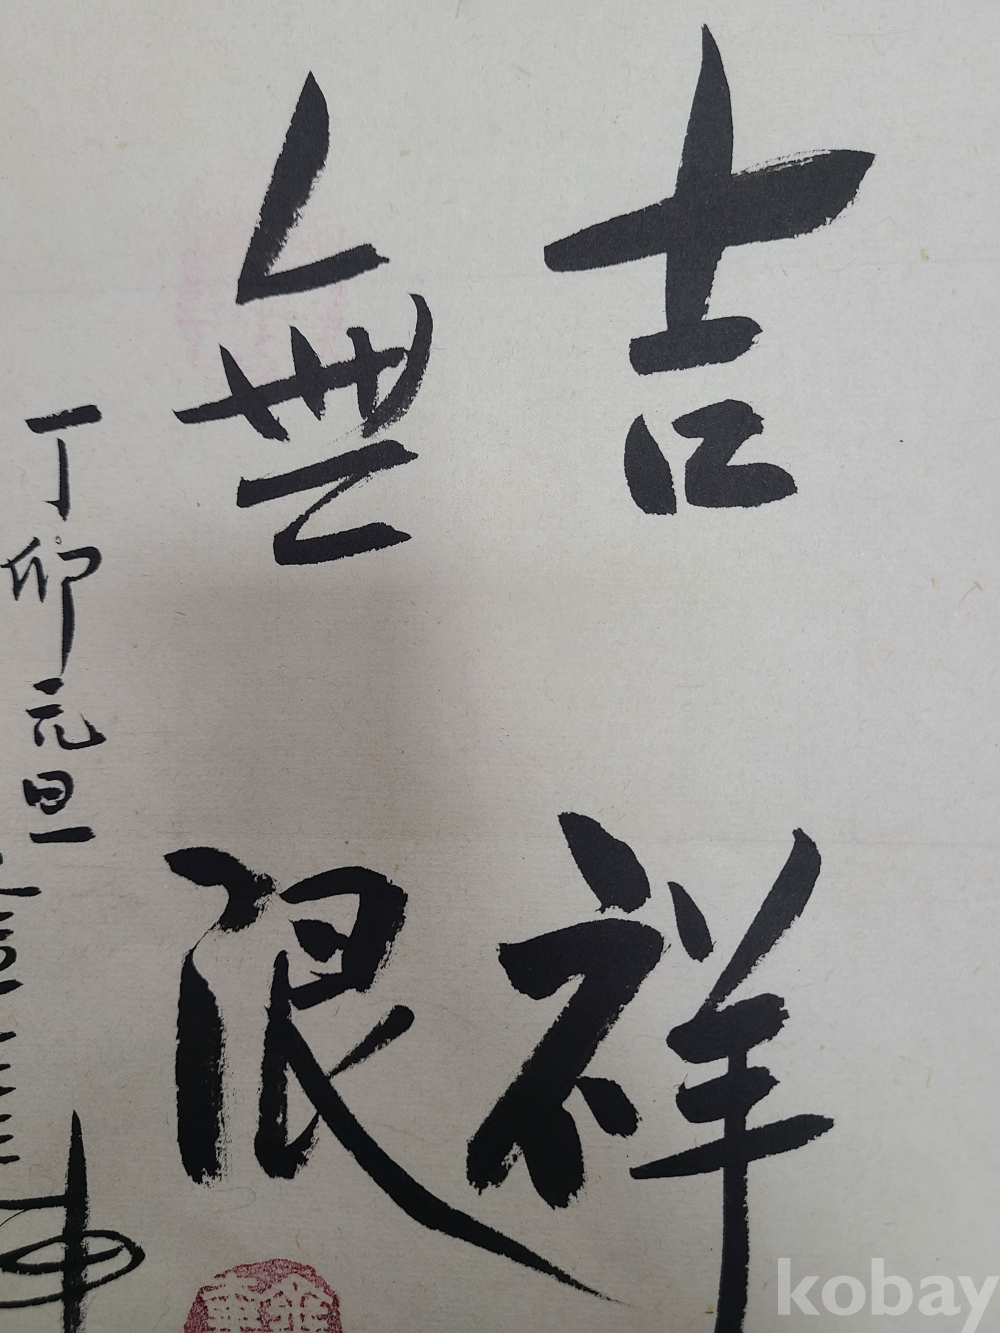 吉祥
無限
丁卯元旦
kobay